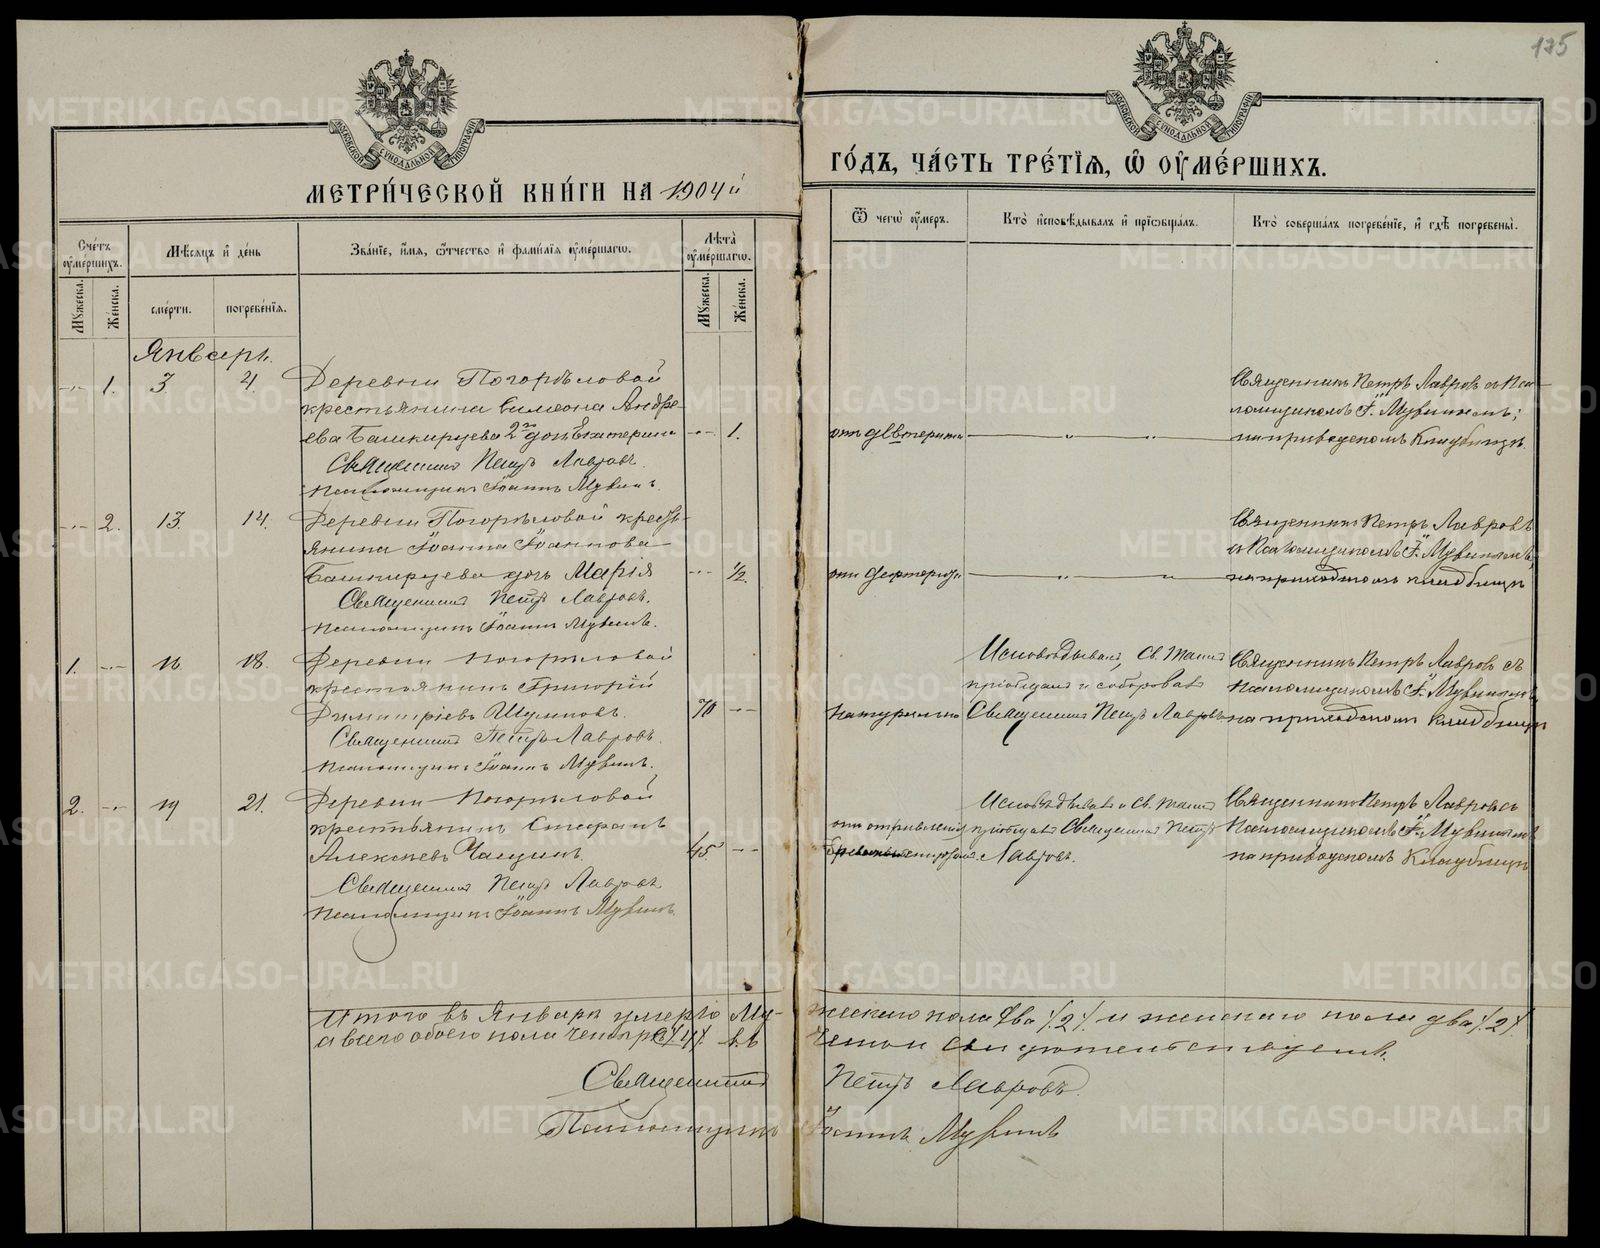 175
МОСКОВСКОЙ СѴНОДАЛЬНОЙ ТИПОГРАФІИ
МОСКОВСКОЙ СѴНОДАЛЬНОЙ ТИПОГРАФІИ
МЕТРИ́ЧЕСКОЙ КНИ́ГИ НА 1904й
ГО́ДЪ, ЧА́СТЬ ТРЕ́ТІѦ, Ѽ ОУ҆МЕ́РШИХЪ.
Сче́тъ оу҆ме́ршихъ.
Мѣ́сѧцъ и҆ де́нь
Зва́нїе, и҆́мѧ, ѻ҆́тчество и҆ фами́лїѧ оу҆ме́ршагѡ.
Лѣ́та оу҆ме́ршагѡ.
Ѿ чегѡ̀ оу҆́меръ.
Кто̀ и҆сповѣ́дывалъ и҆ прїѡбща́лъ.
Кто̀ соверша́лъ погребе́нїе, и҆ гдѣ̀ погребены̀.
Мꙋ́жеска.
Же́нска.
сме́рти.
погребе́нїѧ.
Мꙋ́жеска.
Же́нска.
Январь.
1. 3 4. Деревни Погорѣловой
крестьянина Симеона Андре-
ева Башкирцева 2я дочь Екатерина 1.
Священникъ Петръ Лавровъ.
Псаломщикъ Іоаннъ Мувинъ.
отъ дифтерита
Священникъ Петръ Лавровъ съ Пса-
ломщикомъ І. Мувинымъ;
на приходскомъ кладбищѣ.
2. 13. 14. Деревни Погорѣловой кресть-
янина Іоанна Іоаннова
Башкирцева дочь Марія 1/2.
Священникъ Петръ Лавровъ.
Псаломщикъ Іоаннъ Мувинъ.
отъ дифтерита
Священникъ Петръ Лавровъ
съ Псаломщикомъ І. Мувинымъ,
на приходскомъ кладбищѣ
1. 16 18. Деревни Погорѣловой
крестьянинъ Григорій
Димитріевъ Шумковъ. 70
Священникъ Петръ Лавровъ.
Псаломщикъ Іоаннъ Мувинъ.
натурально
Исповѣдывалъ, Св. Таинъ
пріобщалъ и соборовалъ
Священникъ Петръ Лавровъ
Священникъ Петръ Лавровъ съ
Псаломщикомъ І. Мувинымъ,
на приходскомъ кладбищѣ
2. 19 21. Деревни Погорѣловой
крестьянинъ Стефанъ
Алексѣевъ Чащинъ. 45
Священникъ Петръ Лавровъ
Псаломщикъ Іоаннъ Мувинъ.
отъ отравленія
Исповѣдывалъ и Св. Таинъ
пріобщалъ Священникъ Петръ
Лавровъ.
Священникъ Петръ Лавровъ съ
Псаломщикомъ І. Мувинымъ
на приходскомъ кладбищѣ
Итого въ Январѣ умерло Му-
жескаго пола два /.2./ и женскаго пола два /.2./
а всего обоего пола четыре /.4./. въ
чемъ и свидѣтельствуемъ.
Священникъ Петръ Лавровъ.
Псаломщикъ Іоаннъ Мувинъ
METRIKI.GASO-URAL.RU